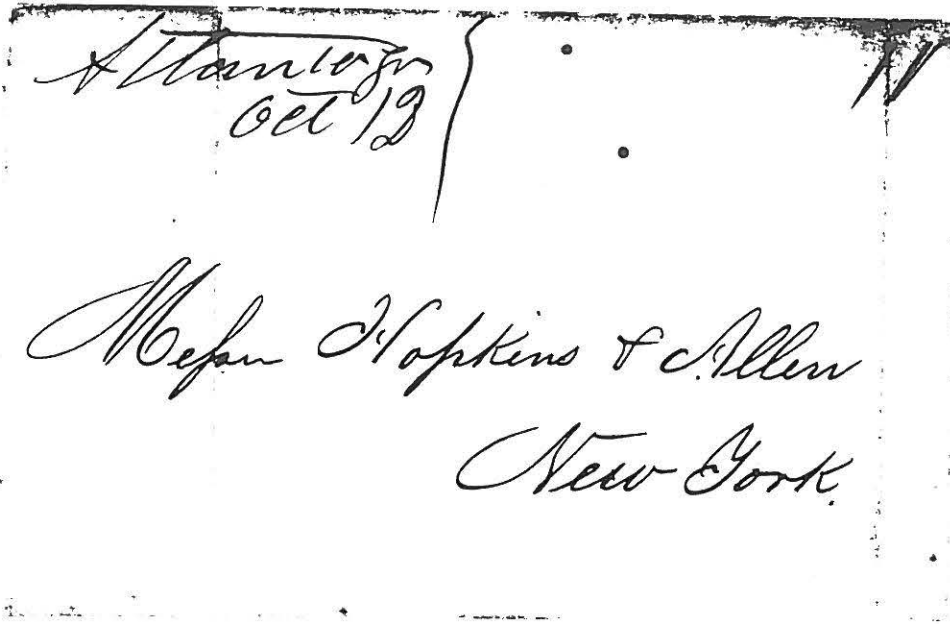 Atlanta Ga
Oct 13
Messrs Hopkins & Allen
New York.